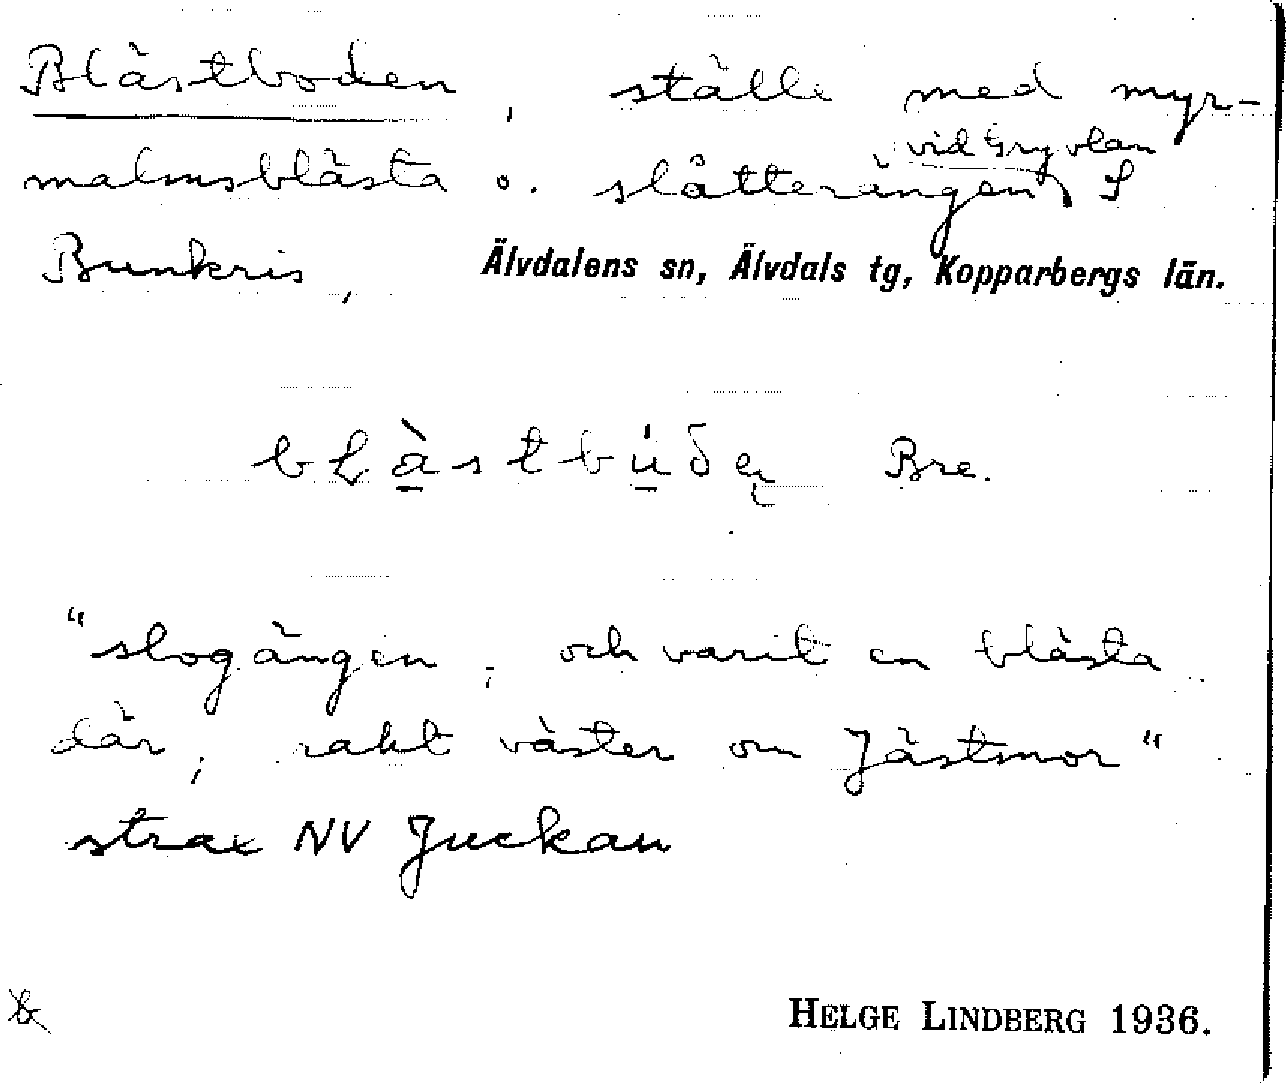 Blästboden, ställe med myr-
malmsblästa o. slåtterängen vid Gryvlan S
Bunkris, Älvdalens sn, Älvdals tg, Kopparbergs län.
Bre.
"slogängen, och varit en blästa
där, rakt väster om Jästmor"
strax NV Juckan
HELGE LINDBERG 1936.